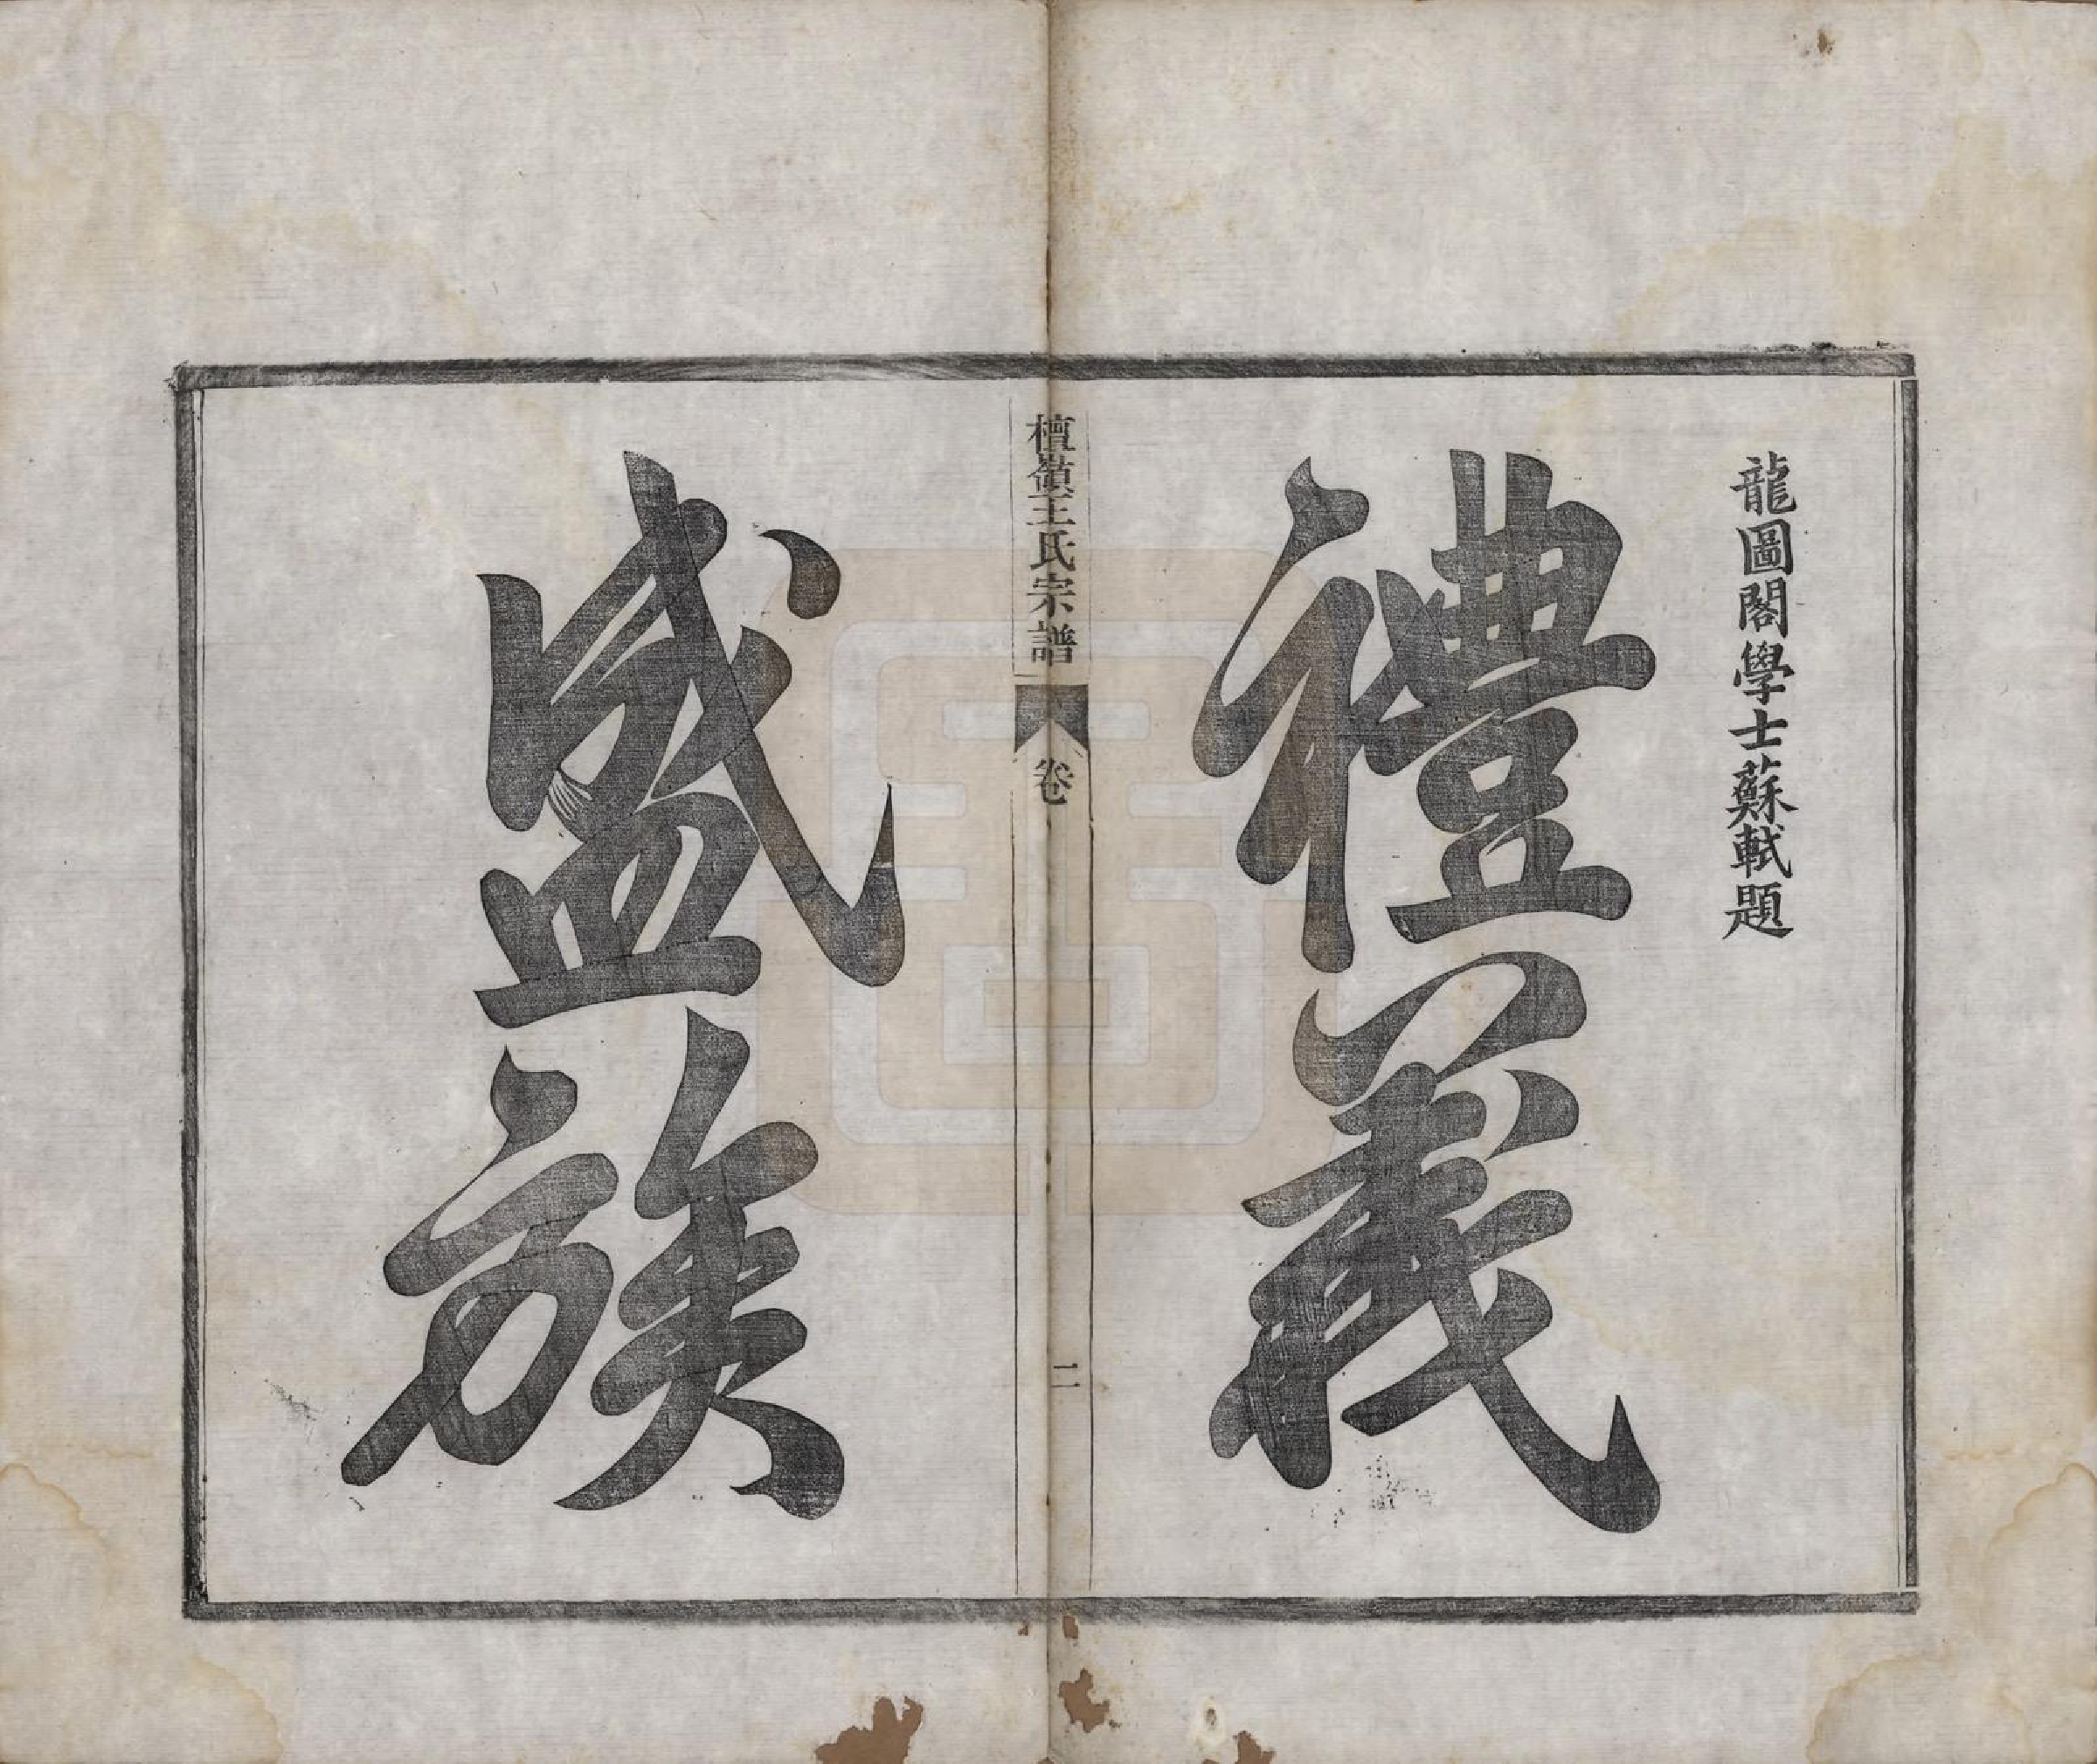 龍圖閣學士蘇軾題
禮義
檀嶺王氏宗譜
卷
二
盛族